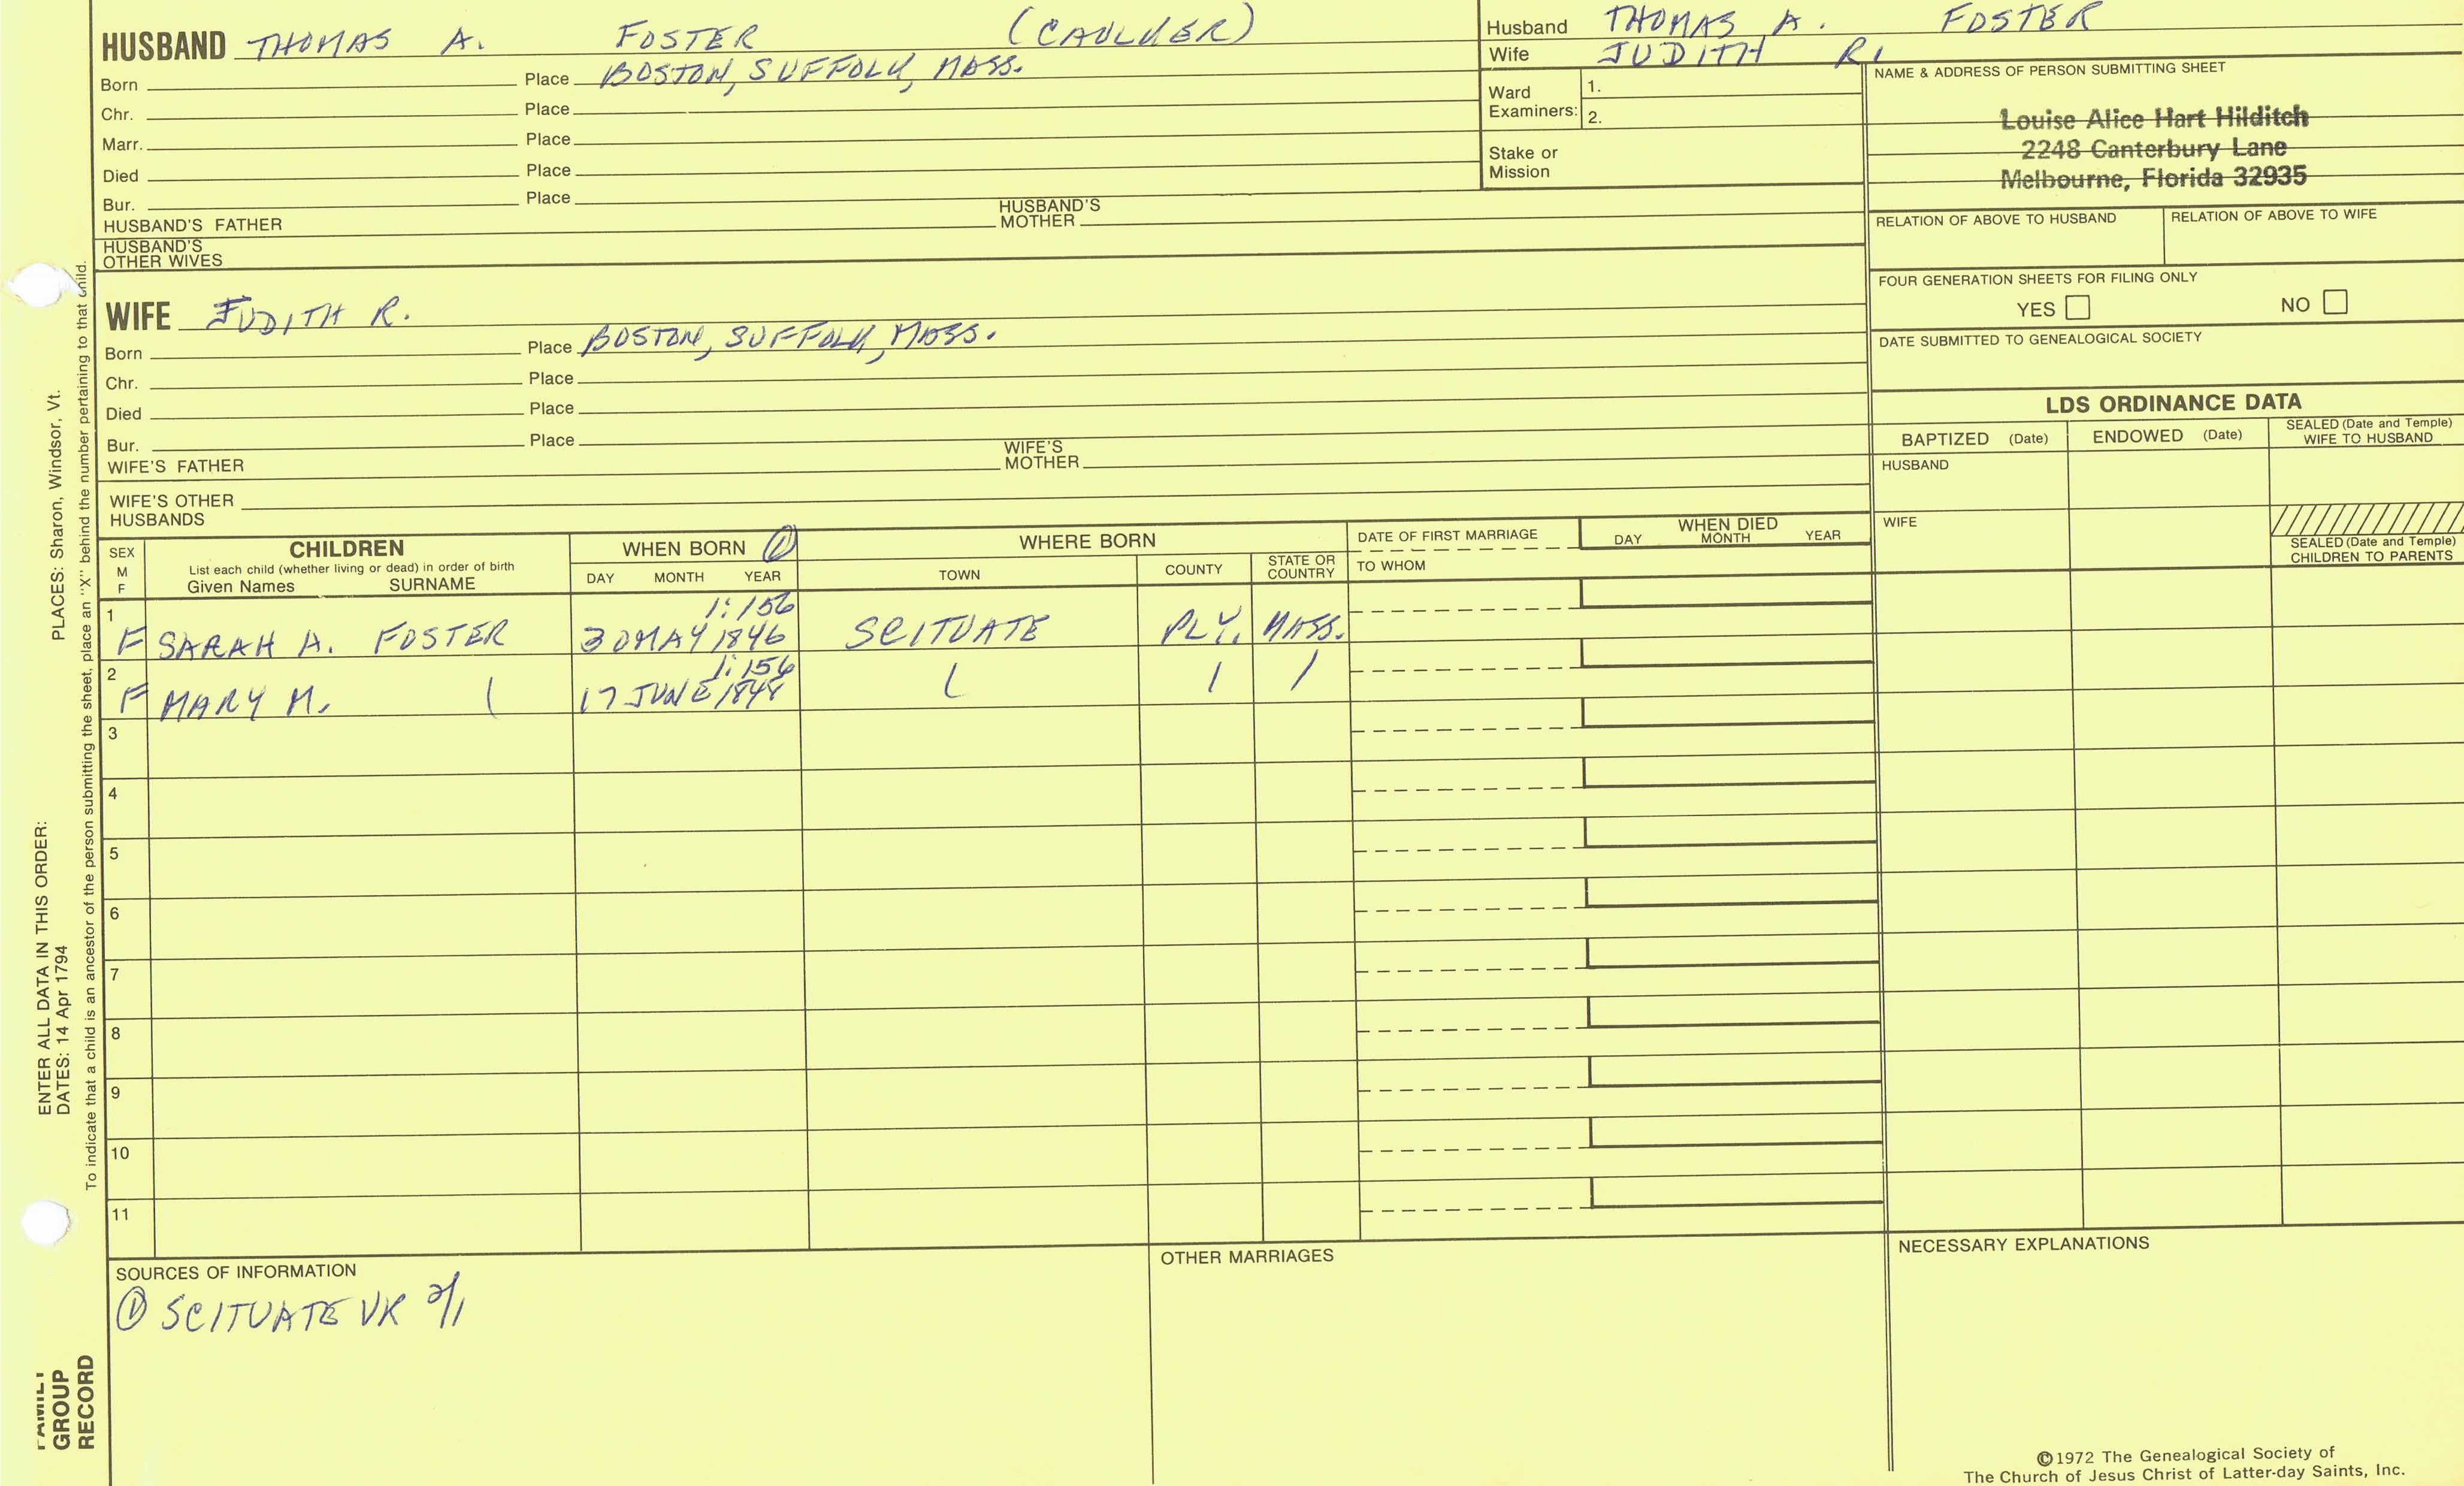 HUSBAND THOMAS A. FOSTER (CAULKER)
Born Place BOSTON, SUFFOLK, MASS.
Chr. Place
Marr. Place
Died Place
Bur. Place
HUSBAND'S FATHER HUSBAND'S MOTHER
HUSBAND'S OTHER WIVES
Husband THOMAS A. FOSTER
Wife JUDITH R.
Ward Examiners: 1.
2.
Stake or Mission
NAME & ADDRESS OF PERSON SUBMITTING SHEET
Louise Alice Hart Hilditch
2248 Canterbury Lane
Melbourne, Florida 32935
RELATION OF ABOVE TO HUSBAND RELATION OF ABOVE TO WIFE
FOUR GENERATION SHEETS FOR FILING ONLY
YES NO
DATE SUBMITTED TO GENEALOGICAL SOCIETY
WIFE JUDITH R.
Born Place BOSTON, SUFFOLK, MASS.
Chr. Place
Died Place
Bur. Place
WIFE'S FATHER WIFE'S MOTHER
WIFE'S OTHER HUSBANDS
LDS ORDINANCE DATA
BAPTIZED (Date) ENDOWED (Date) SEALED (Date and Temple) WIFE TO HUSBAND
HUSBAND
WIFE
SEALED (Date and Temple) CHILDREN TO PARENTS
SEX M F
CHILDREN
List each child (whether living or dead) in order of birth
Given Names SURNAME
WHEN BORN ①
DAY MONTH YEAR
WHERE BORN
TOWN COUNTY STATE OR COUNTRY
DATE OF FIRST MARRIAGE
TO WHOM
WHEN DIED
DAY MONTH YEAR
1 1:156
F SARAH A. FOSTER 30 MAY 1846 SCITUATE PLY. MASS.
2 1:156
F MARY M. 17 JUNE 1848
3
4
5
6
7
8
9
10
11
SOURCES OF INFORMATION
① SCITUATE VR
OTHER MARRIAGES
NECESSARY EXPLANATIONS
©1972 The Genealogical Society of
The Church of Jesus Christ of Latter-day Saints, Inc.
ENTER ALL DATA IN THIS ORDER:
DATES: 14 Apr 1794
PLACES: Sharon, Windsor, Vt.
To indicate that a child is an ancestor of the person submitting the sheet, place an "X" behind the number pertaining to that child.
FAMILY
GROUP
RECORD